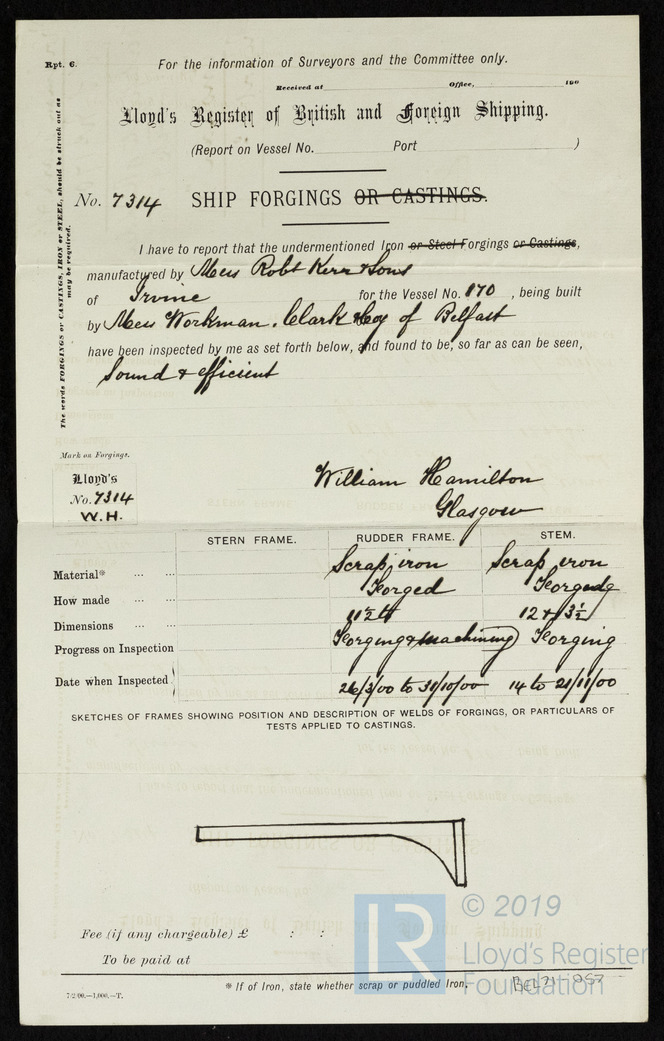 Rpt. 6.
For the information of Surveyors and the Committee only.
Received at Office, 190
Lloyd's Register of British and Foreign Shipping.
(Report on Vessel No. Port )
No. 7314 SHIP FORGINGS OR CASTINGS.
The words FORGINGS or CASTINGS, IRON or STEEL, should be struck out as
may be required.
I have to report that the undermentioned Iron or Steel Forgings or Castings,
manufactured by Mess Robt Kerr & Sons
of Irvine for the Vessel No. 170, being built
by Mess Workman, Clark & Coy of Belfast
have been inspected by me as set forth below, and found to be, so far as can be seen,
Sound & efficient
Mark on Forgings.
Lloyd's
No. 7314
W.H.
William Hamilton
Glasgow
STERN FRAME. RUDDER FRAME. STEM.
Material* ... ... Scrap iron Scrap iron
How made ... ... Forged Forged
Dimensions ... ... 12 x 3½
Progress on Inspection Forging & machining Forging
Date when Inspected 26/3/00 to 31/10/00 14 to 21/11/00
SKETCHES OF FRAMES SHOWING POSITION AND DESCRIPTION OF WELDS OF FORGINGS, OR PARTICULARS OF
TESTS APPLIED TO CASTINGS.
Fee (if any chargeable) £ : :
To be paid at
* If of Iron, state whether scrap or puddled Iron.
7·2·00.—1,000.—T.
LR
© 2019
Lloyd's Register
Foundation
BEL71